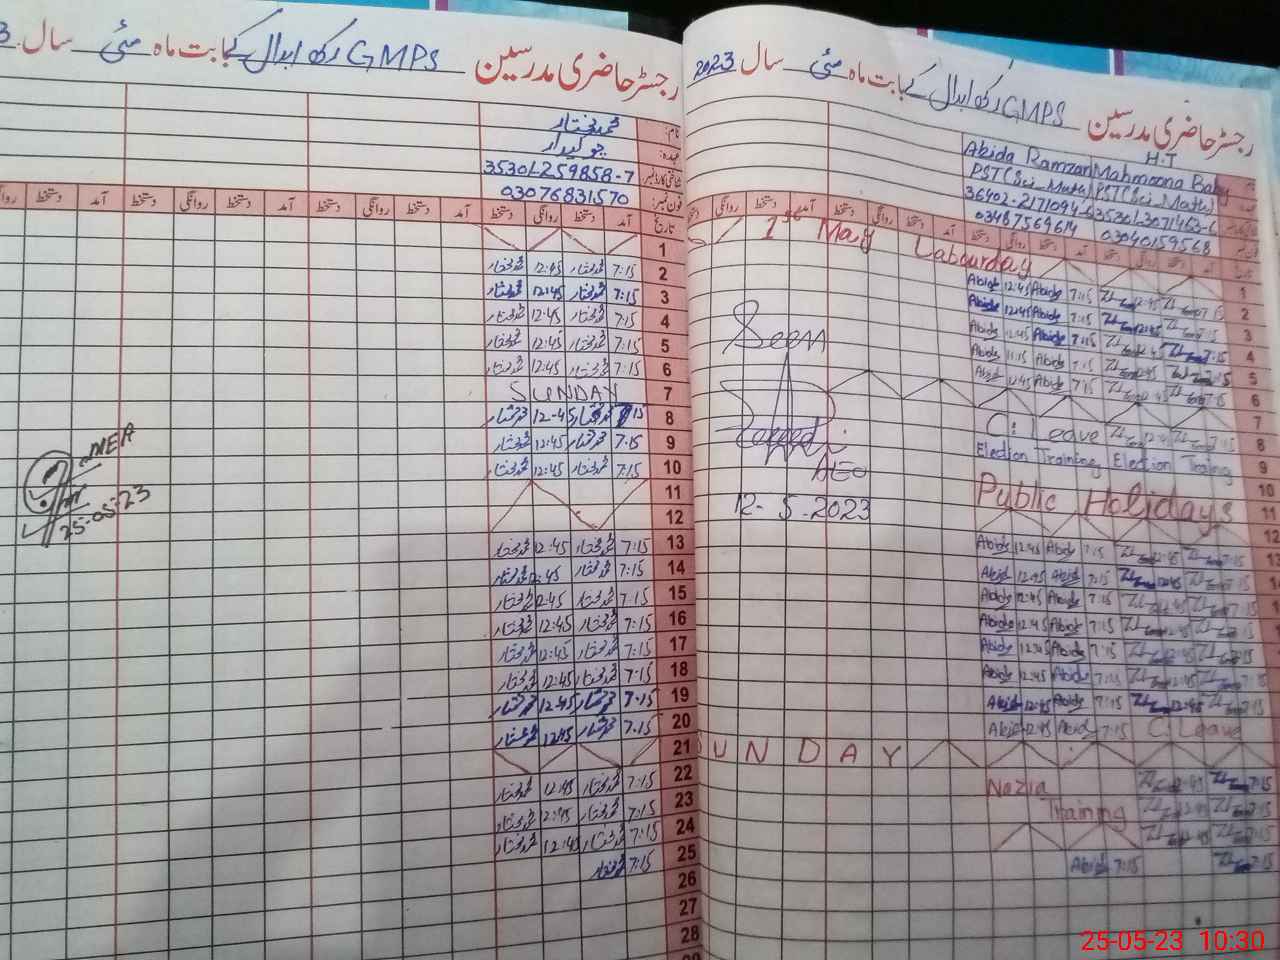 رجسٹر حاضری مدرسین GMPS رکھ ابدال کے بابت ماہ مئی سال 2023
نام: Mahmoona Baby H.T Abida Ramzan
PST(Sci_Math) PST(Sci_Math)
35301-3071463-6 36402-2171094-6
03040159568 03487569614
تاریخ آمد دستخط روانگی دستخط آمد دستخط روانگی دستخط آمد دستخط روانگی
1 1st May Labourday
2 7:15 12:45 7:15 Abida 12:45 Abida
3 7:15 12:45 7:15 Abida 12:45 Abida
4 7:15 12:45 7:15 Abida 12:45 Abida
5 7:15 12:45 7:15 Abida 11:15 Abida
6 7:15 12:45 7:15 Abida 12:45 Abida
7
8 7:15 12:45 C. Leave
9 Election Training Election Training
10
11 Public Holidays
12
13 7:15 12:45 7:15 Abida 12:45 Abida
7:15 12:45 7:15 Abida 12:45 Abida
7:15 12:45 7:15 Abida 12:45 Abida
7:15 12:45 7:15 Abida 12:45 Abida
7:15 12:45 7:15 Abida 12:45 Abida
7:15 12:45 7:15 Abida 12:45 Abida
7:15 12:45 7:15 Abida 12:45 Abida
C. Leave 7:15 Abida 12:45 Abida
SUNDAY
7:15 12:45 Nazia
7:15 12:45 Training
7:15 12:45
7:15 7:15 Abida
Seen
AEO
12-5-2023
رجسٹر حاضری مدرسین GMPS رکھ ابدال کے بابت ماہ مئی سال 3
نام: محمد مختار
عہدہ: چوکیدار
شناختی کارڈ نمبر: 35301-259858-7
فون نمبر: 03076831570
تاریخ آمد دستخط روانگی دستخط آمد دستخط روانگی دستخط آمد دستخط روانگی دستخط
1
2 7:15 محمد مختار 12:45 محمد مختار
3 7:15 محمد مختار 12:45 محمد مختار
4 7:15 محمد مختار 12:45 محمد مختار
5 7:15 محمد مختار 12:45 محمد مختار
6 7:15 محمد مختار 12:45 محمد مختار
7 SUNDAY
8 7:15 محمد مختار 12-45 محمد مختار
9 7:15 محمد مختار 12:45 محمد مختار
10 7:15 محمد مختار 12:45 محمد مختار
11
12
13 7:15 محمد مختار 12:45 محمد مختار
14 7:15 محمد مختار 12:45 محمد مختار
15 7:15 محمد مختار 12:45 محمد مختار
16 7:15 محمد مختار 12:45 محمد مختار
17 7:15 محمد مختار 12:45 محمد مختار
18 7:15 محمد مختار 12:45 محمد مختار
19 7:15 محمد مختار 12:45 محمد مختار
20 7:15 محمد مختار 12:45 محمد مختار
21
22 7:15 محمد مختار 12:45 محمد مختار
23 7:15 محمد مختار 12:45 محمد مختار
24 7:15 محمد مختار 12:45 محمد مختار
25 7:15 محمد مختار
26
27
28
MEA
25-05-23
25-05-23 10:30